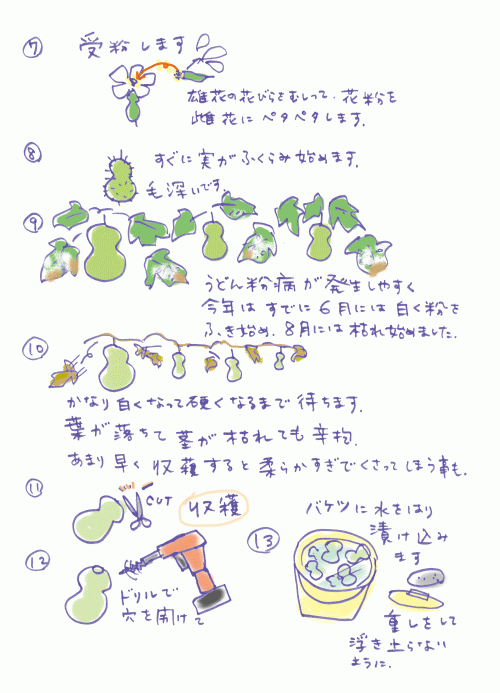 ⑦ 受粉します
雄花の花びらをむしって、花粉を
雌花にペタペタします.
⑧ すぐに実がふくらみ始めます.
毛深いです.
⑨
うどん粉病が発生しやすく
今年はすでに6月には白く粉を
ふき始め、8月には枯れ始めました.
⑩
かなり白くなって硬くなるまで待ちます.
葉が落ちて茎が枯れても辛抱.
あまり早く収穫すると柔らかすぎでくさってしまう事も.
⑪ CUT 収穫
⑫ ドリルで
穴を開けて
⑬ バケツに水をはり
漬け込み
ます
重しをして
浮き上らない
ように.